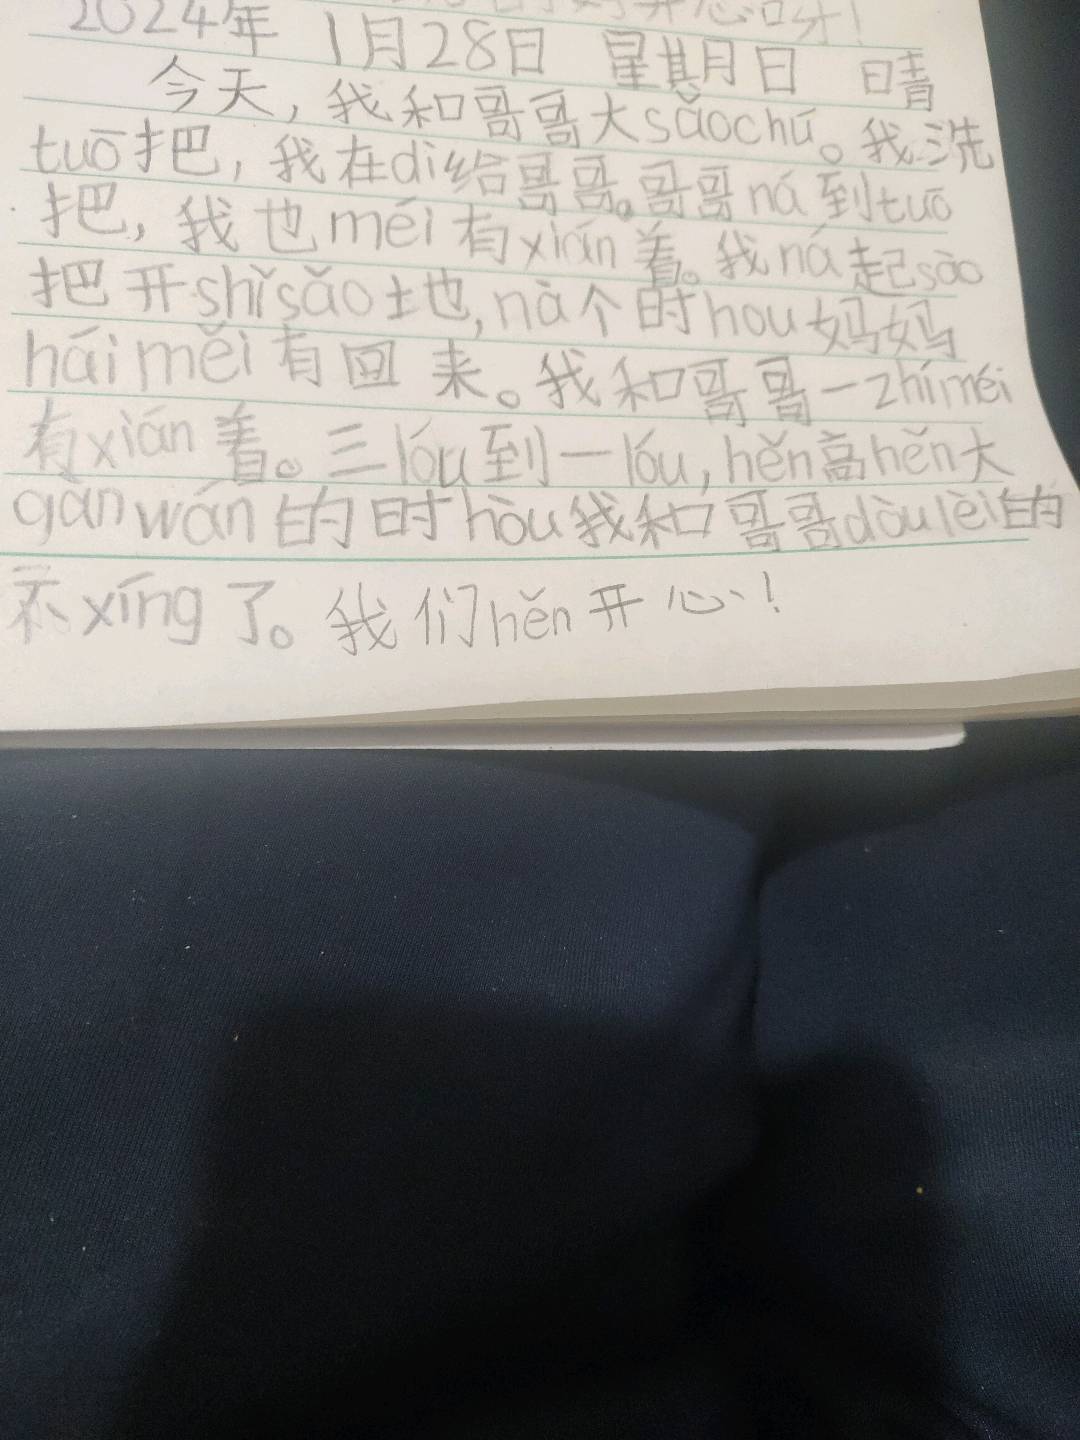 2024年 1月28日 星期日 晴
今天，我和哥哥大sǎochú。我洗
tuō把，我在dì给哥哥。哥哥ná到tuō
把，我也méi有xián着。我ná起sào
把开shǐsǎo土也，nà个时hou妈妈
háiměi有回来。我和哥哥一zhíméi
有xián着。三lóu到一lóu，hěn高hěn大
gànwán的时hòu我和哥哥dòulèi的
不xíng了。我们hěn开心！